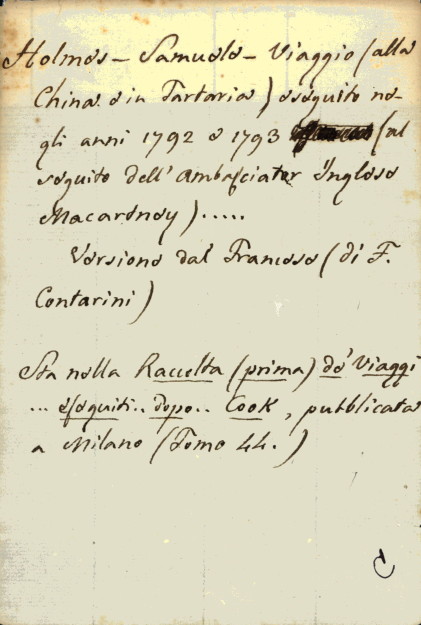 Holmes - Samuele - Viaggio (alla
China e in Tartaria) eseguito ne-
gli anni 1792 e 1793 (al
seguito dell' Ambasciator Inglese
Macartney).....
Versione dal Francese (di F.
Contarini)
Sta nella Raccolta (prima) de' Viaggi
... eseguiti.. dopo.. Cook, pubblicata
a Milano (Tomo 44.)
C